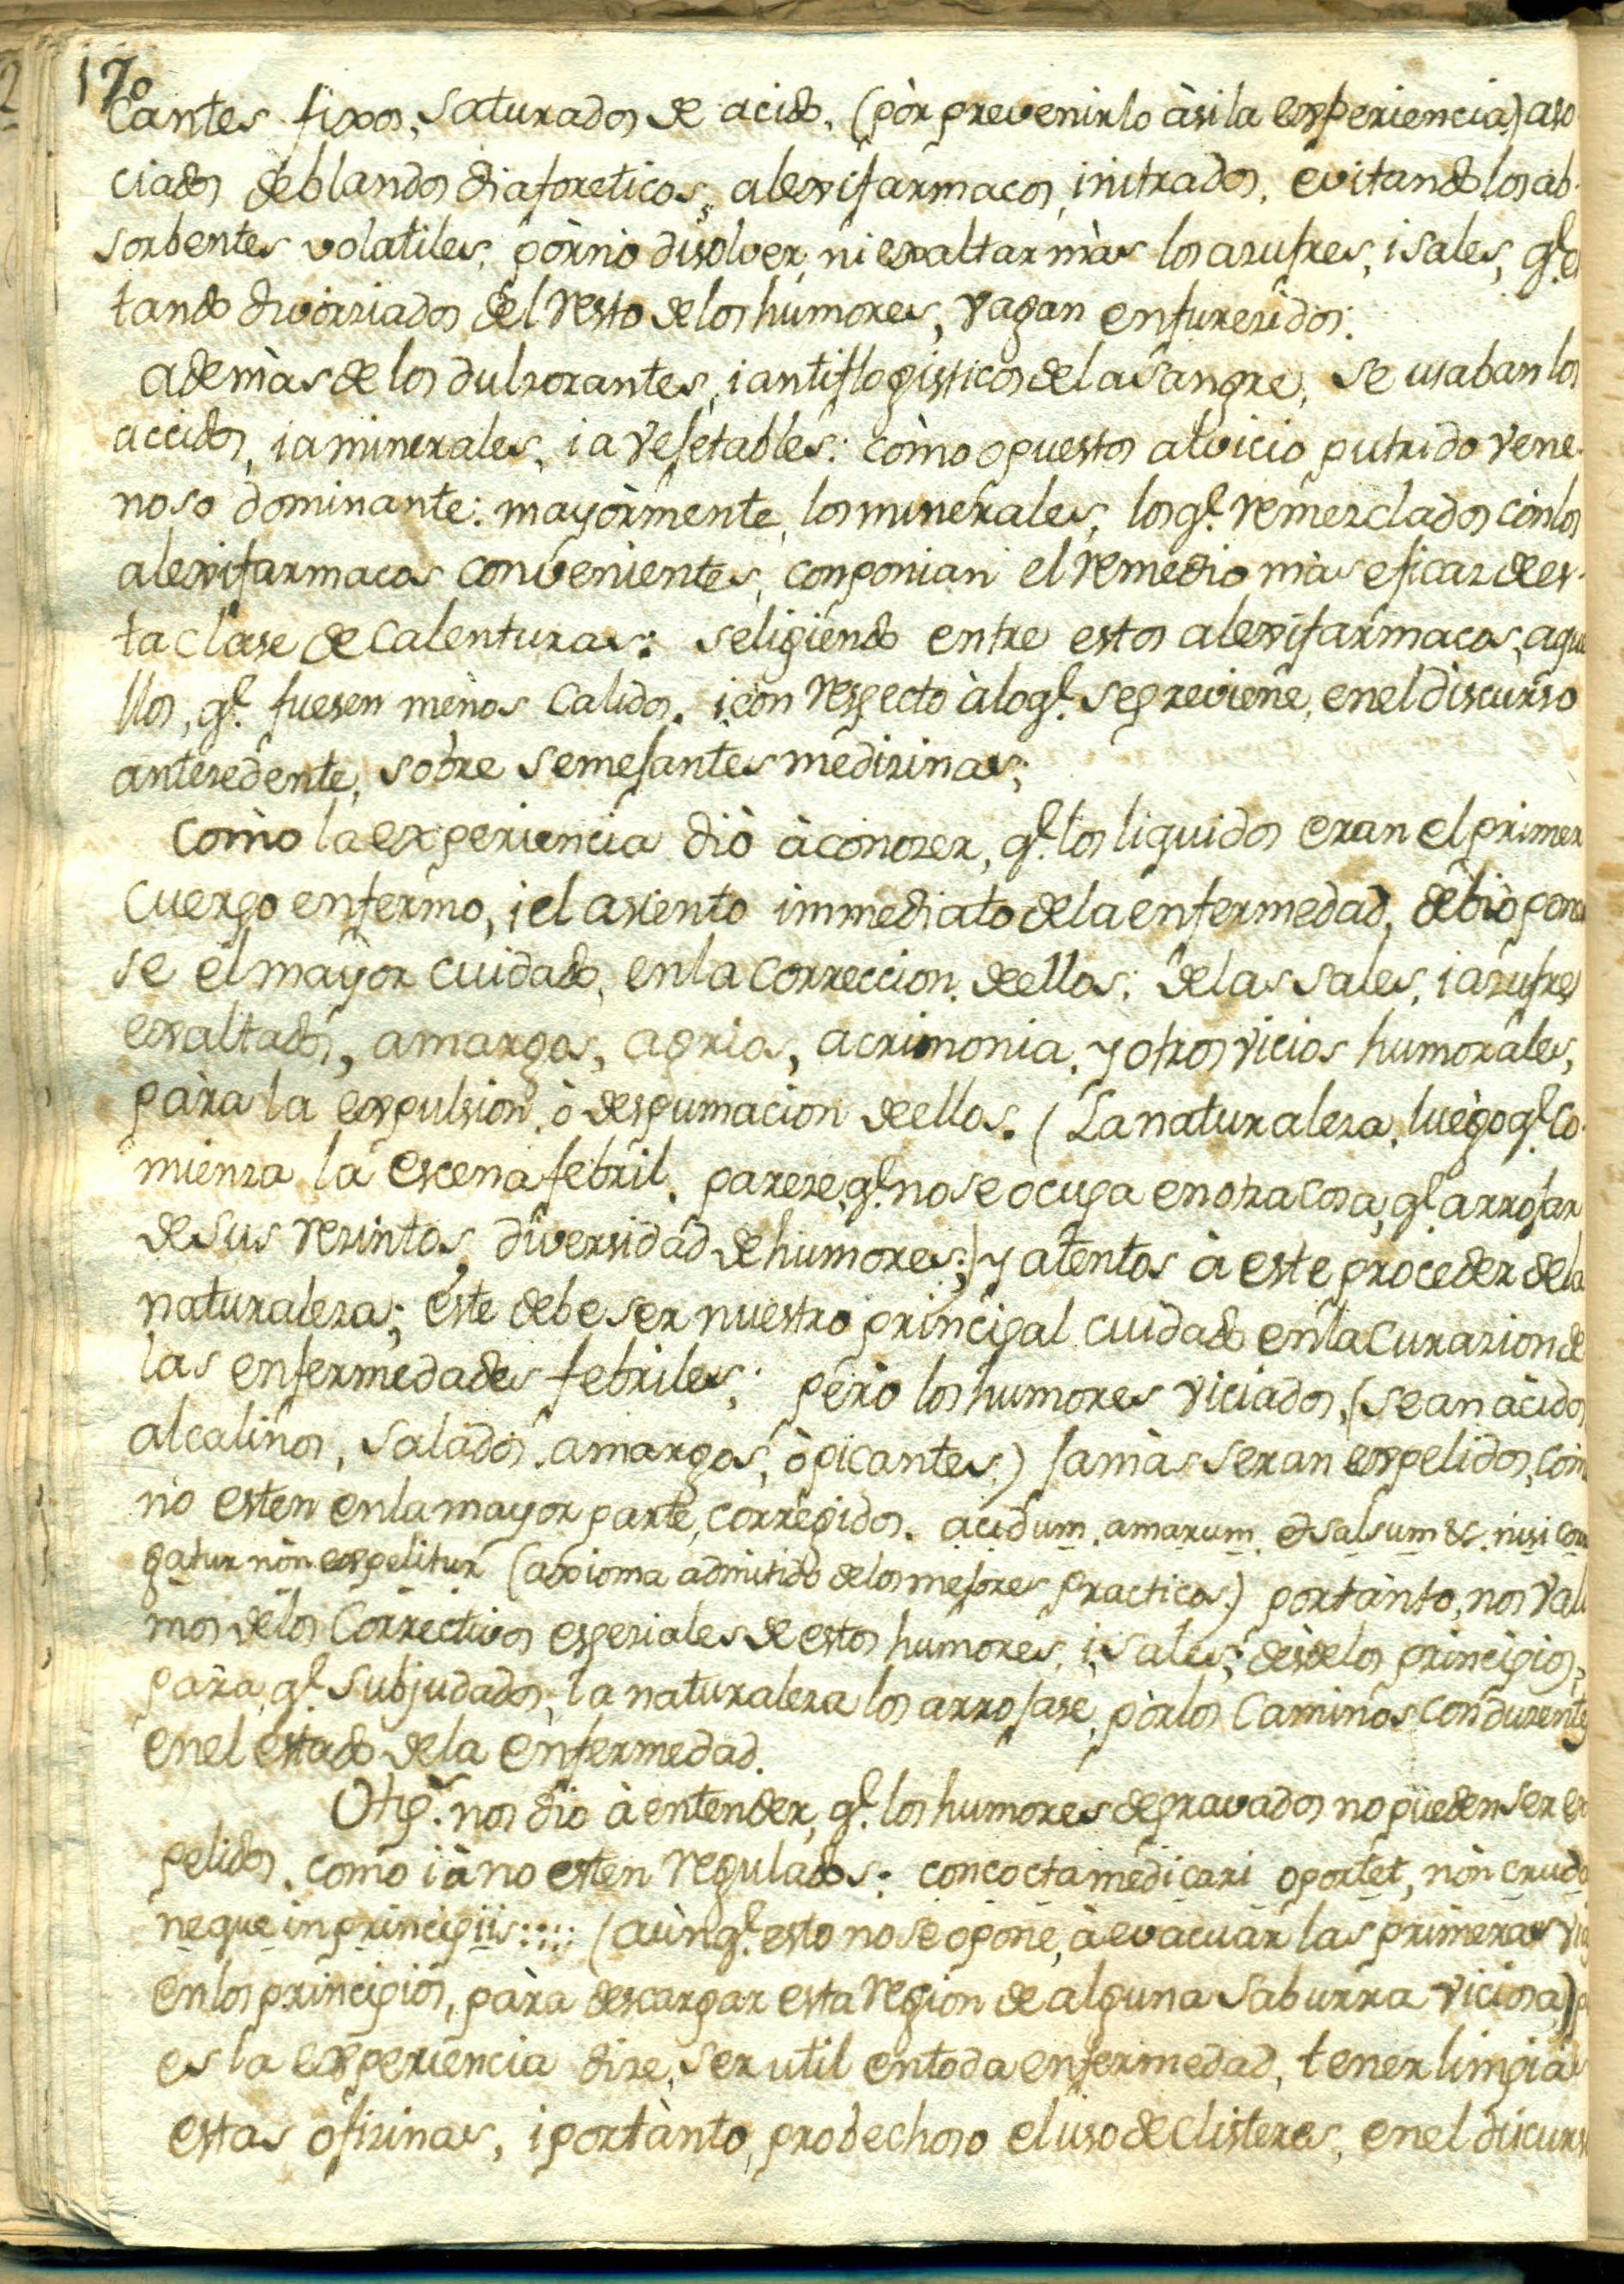 170
cantes fixos, saturados de acido, (pòr prevenirlo àsi la experiencia) aso
ciados de blandos diaforeticos, alexifarmacos, initrados, evitando los ab-
sorbentes volatiles, pòr nò disolver, ni exaltar màs los azufres, i sales, q.e es
tando divorziados del resto de los humores, vagan enfurezidos.
ademàs de los dulzorantes, i antiflogisticos de la sangre, se usaban los
accidos, ia minerales, ia vejetables: còmo opuestos al vicio putrido vene-
noso dominante: mayòrmente, los minerales, los q.e remezclados còn los
alexifarmacos convenientes, conponian el remedio màs eficaz de es-
ta clase de calenturas: seligiendo entre estos alexifarmacos, aque
llos, q.e fuesen mènos calidos. i con respecto à lo q.e se previene, en el discurso
antezedente, sobre semejantes medizinas;
Còmo la experiencia diò à conozer, q.e los liquidos eran el primer
cuerpo enfermo, i el asiento immediato de la enfermedad, debiò poner
se el mayor cuidado, en la correccion de ellos: de las sales, i azufres
exaltados, amargos, agrios, acrimonia, y otros vicios humorales,
pàra la expulsion, ò despumacion de ellos. (La naturaleza, luègo q.e co-
mienza la escena febril, pareze, q.e no se ocupa en otra cosa, q.e arrojar
de sus rezintos, diversidad de humores;) y atentos à este proceder de la
naturaleza; este debe ser nuestro principal cuidado en la curazion de
las enfermedades febriles; pèro los humores viciados, (sean àcidos
alcalinos, salados, amargos, ò picantes) jamàs seran expelidos, còmo
nò esten en la mayor parte, corregidos. acidum, amarum, et salsum &c. nisi corri
gatur nòn expelitur (axioma admitido de los mejores practicos) portànto, nos vali
mos de los correctivos espeziales de estos humores, i sales; desde los principios,
pàra q.e subjudados, la naturaleza los arrojase, pòr los caminos conduzentes
en el estado de la enfermedad.
Otip.s nos diò à entender, q.e los humores depravados no pueden ser ex
pelidos, como ià no esten regulados: concocta medicari oportet, nòn cruda
neque in principiis::::: (aùn q.e esto no se opone, à evacuar las primeras vias
en los principios, pàra descargar esta region de alguna saburra viciosa)
es la experiencia dize, ser util en toda enfermedad, tener limpias
estas ofizinas, i portànto, probechoso el uso de clisteres, en el discurso